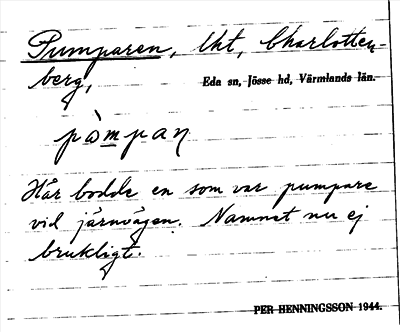 Pumparen, lht, Charlotten-
berg,
Eda sn, Jösse hd, Värmlands län.
pàmpaɳ
Här bodde en som var pumpare
vid järnvägen. Namnet nu ej
brukligt.
PER HENNINGSSON 1944.